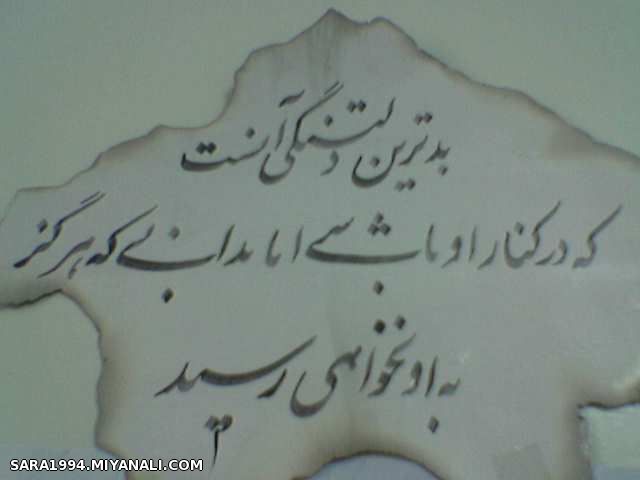 بدترین دلتنگی آنست
که در کنار او باشی اما بدانی که هرگز
به او نخواهی رسید
SARA1994.MIYANALI.COM